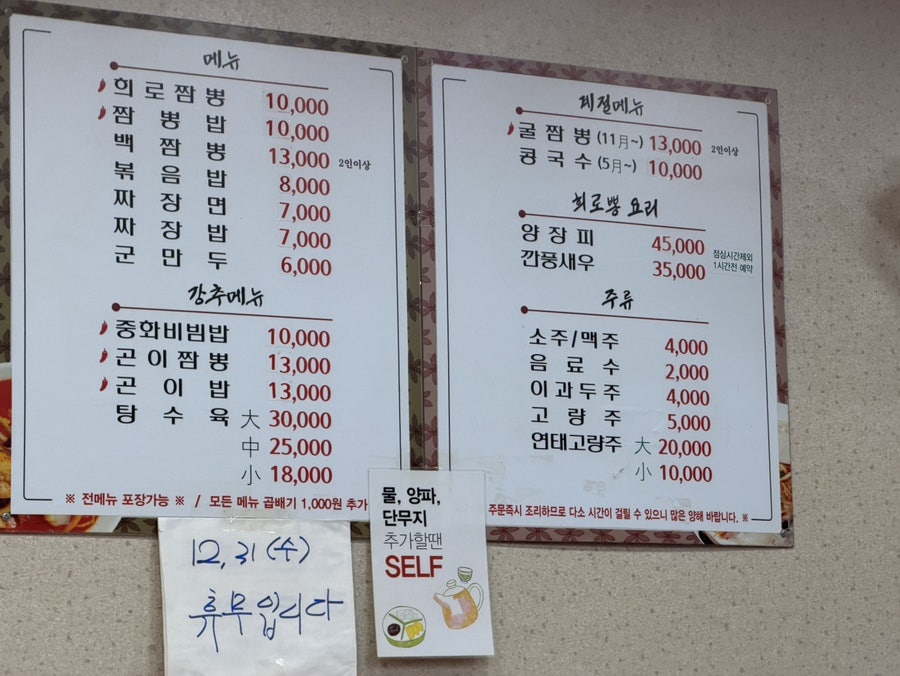 메뉴
희로짬뽕 10,000
짬뽕밥 10,000
백짬뽕 13,000 2인이상
볶음밥 8,000
짜장면 7,000
짜장밥 7,000
군만두 6,000
강추메뉴
중화비빔밥 10,000
곤이짬뽕 13,000
곤이밥 13,000
탕수육 大 30,000
中 25,000
小 18,000
※ 전메뉴 포장가능 ※ / 모든 메뉴 곱배기 1,000원 추가
계절메뉴
굴짬뽕 (11月~) 13,000 2인이상
콩국수 (5月~) 10,000
희로뽕 요리
양장피 45,000
깐풍새우 35,000
점심시간제외
1시간전 예약
주류
소주/맥주 4,000
음료수 2,000
이과두주 4,000
고량주 5,000
연태고량주 大 20,000
小 10,000
주문즉시 조리하므로 다소 시간이 걸릴 수 있으니 많은 양해 바랍니다. ※
물, 양파,
단무지
추가할땐
SELF
12, 31 (수)
휴무입니다